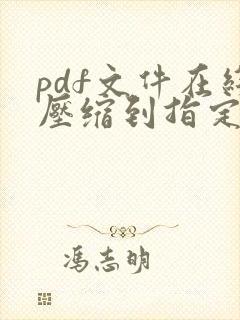 pdf文件在
壓缩到指定
冯志明